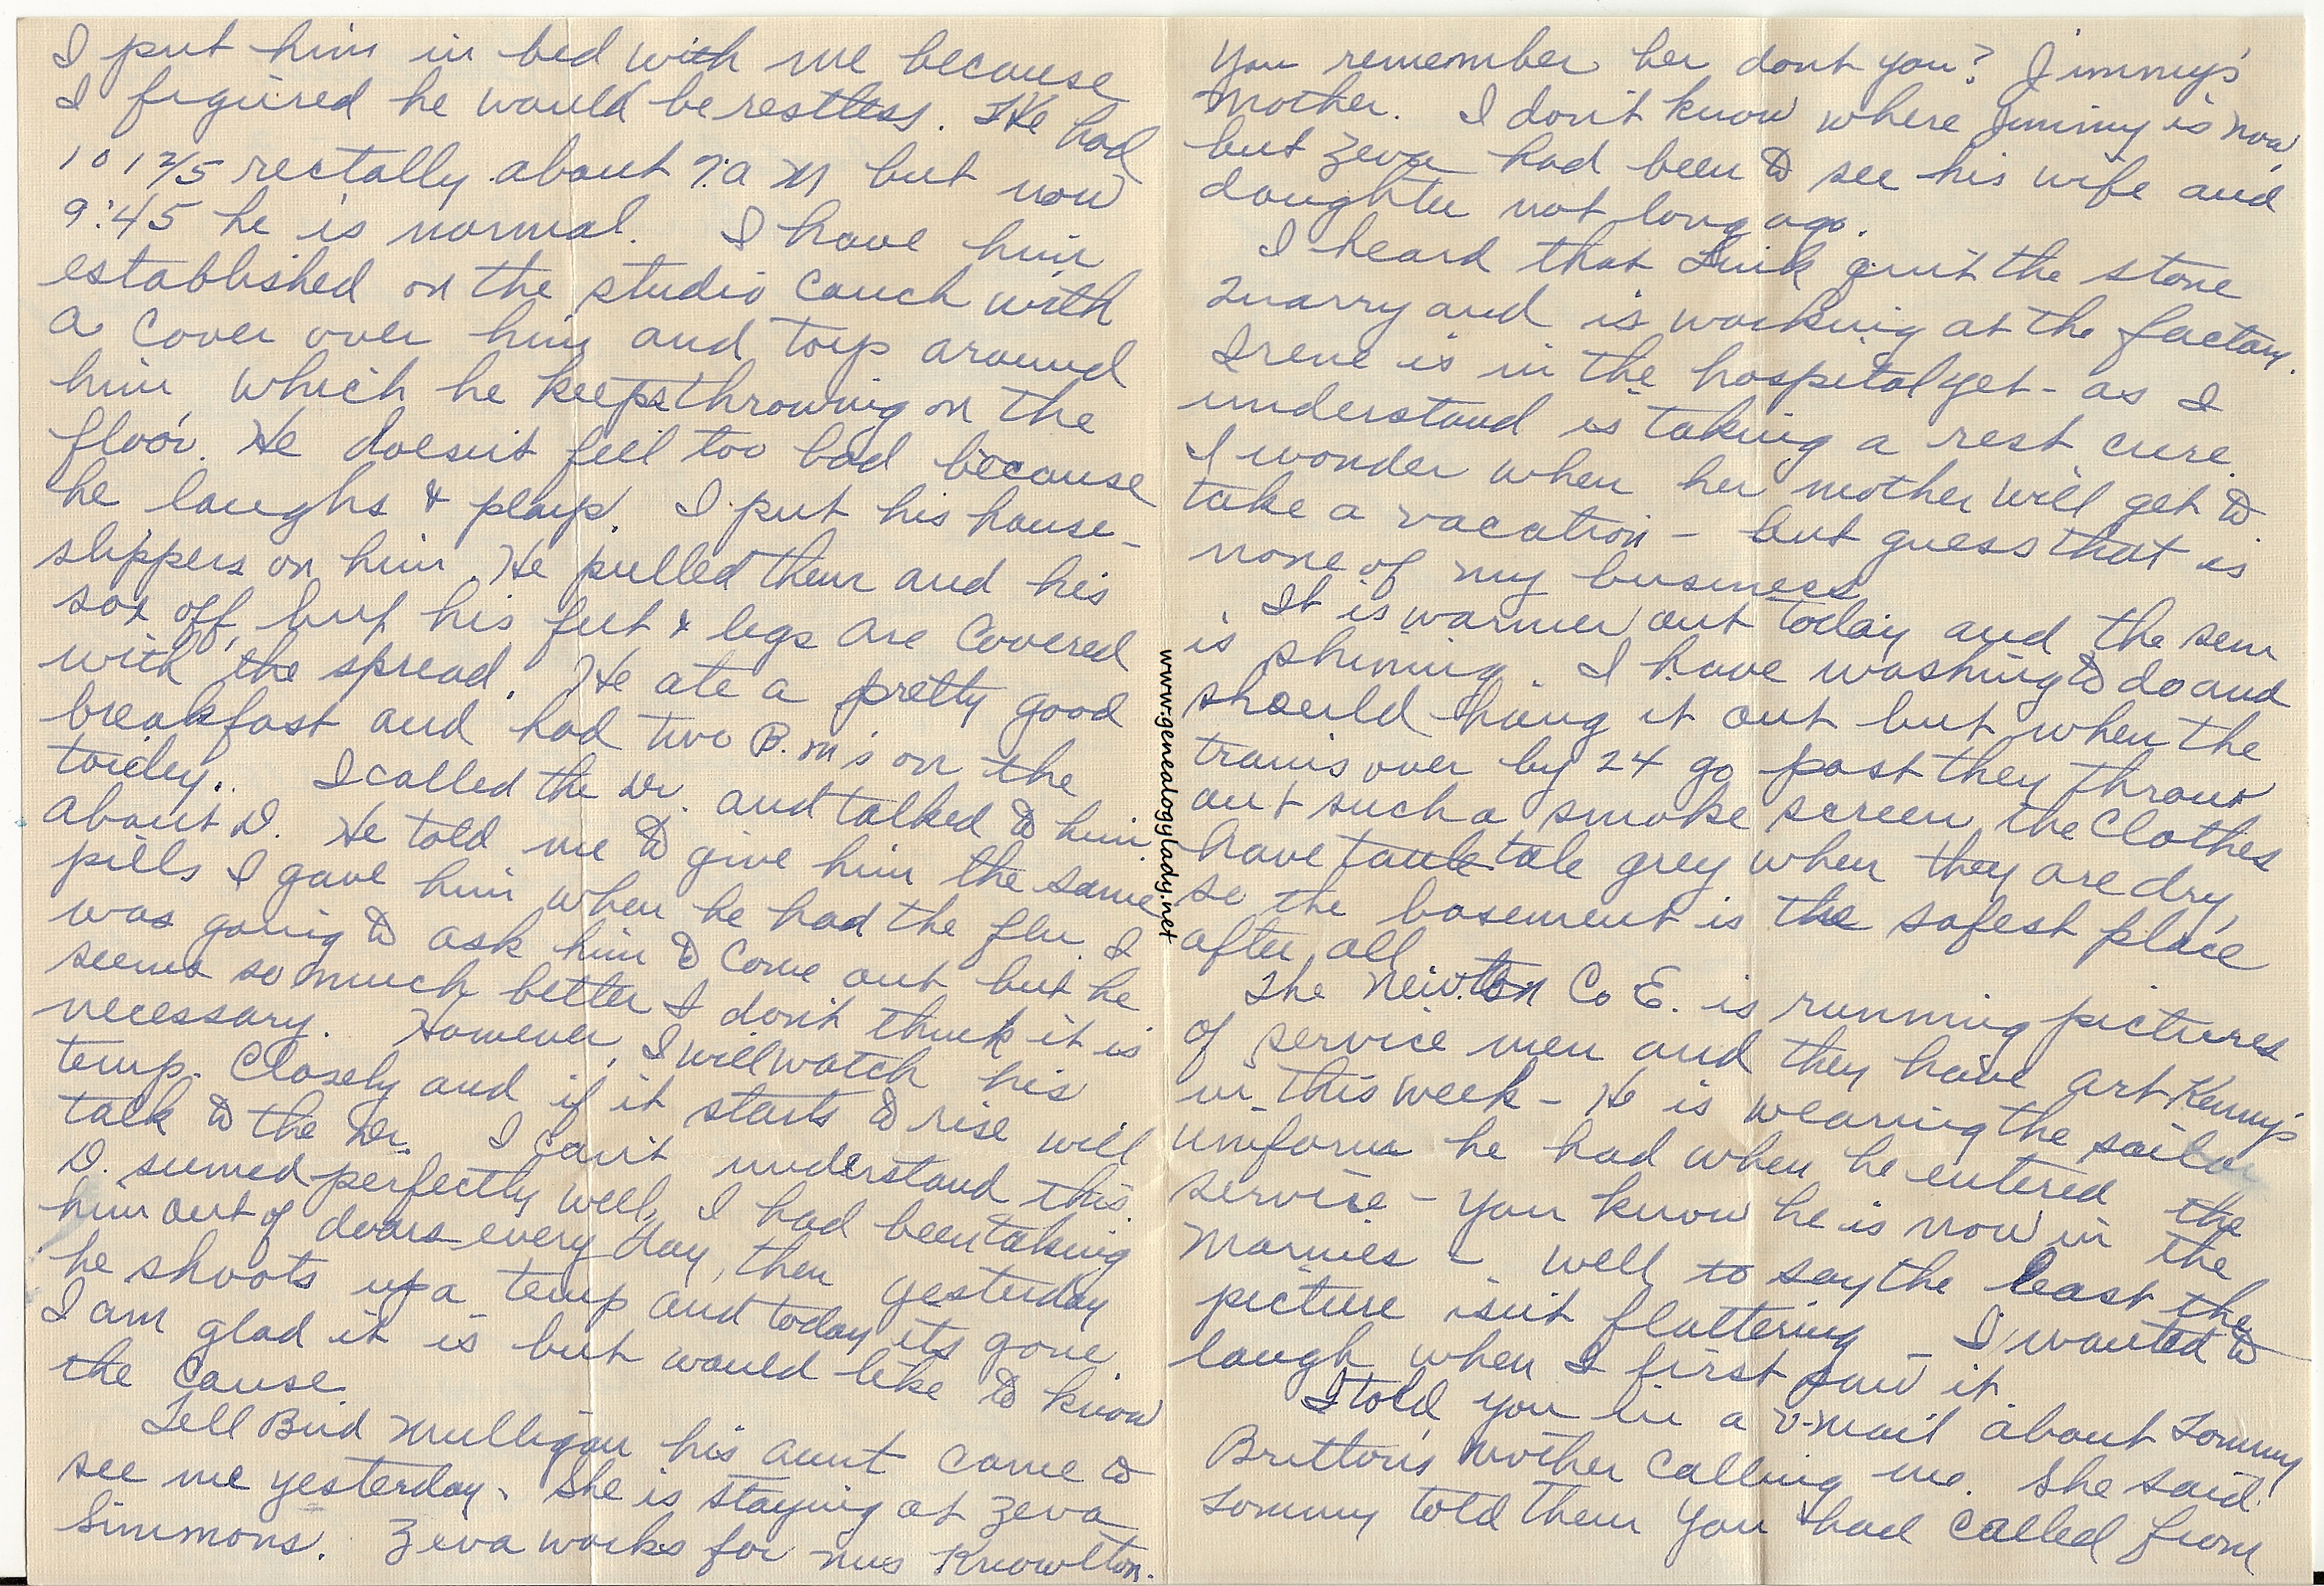 I put him in bed with me because
I figured he would be restless. He had
101 2/5 rectally about 7 a M but now
9:45 he is normal. I have him
established on the studio couch with
a cover over him and toys around
him which he keeps throwing on the
floor. He doesn't feel too bad because
he laughs & plays. I put his house-
slippers on him. He pulled them and his
sox off, but his feet & legs are covered
with the spread. He ate a pretty good
breakfast and had two B.M's on the
toidey. I called the Dr. and talked to him
about D. He told me to give him the same
pills I gave him when he had the flu. I
was going to ask him to come out but he
seems so much better I don't think it is
necessary. However, I will watch his
temp. closely and if it starts to rise will
talk to the Dr. I can't understand this
D. seemed perfectly well, I had been taking
him out of doors every day, then yesterday
he shoots up a temp and today its gone
I am glad it is but would like to know
the cause
Tell Bud Mulligan his aunt came to
see me yesterday. She is staying at Zeva
Simmons. Zeva works for Mrs Knowlton.
You remember her dont you? Jimmy's
Mother. I don't know where Jimmy is now,
but Zeva had been to see his wife and
daughter not long ago.
I heard that quit the stone
quarry and is working at the factory.
Irene is in the hospital yet - as I
understand is taking a rest cure.
I wonder when her mother will get to
take a vacation - but guess that is
none of my business.
It is warmer out today and the sun
is shining. I have washing to do and
should hang it out but when the
trains over by 24 go past they throw
out such a smoke screen, the clothes
have tale grey when they are dry,
so the basement is the safest place
after all.
The Newton Co E. is running pictures
of service men and they have Art Kenny's
in this week - He is wearing the sailor
uniform he had when he entered the
service - You know he is now in the
Marines - Well, to say the least the
picture isn't flattering - I wanted to
laugh when I first saw it
I told you in a v-mail about Tommy
Britton's Mother calling me. She said
Tommy told them you had called from
www.genealogylady.net